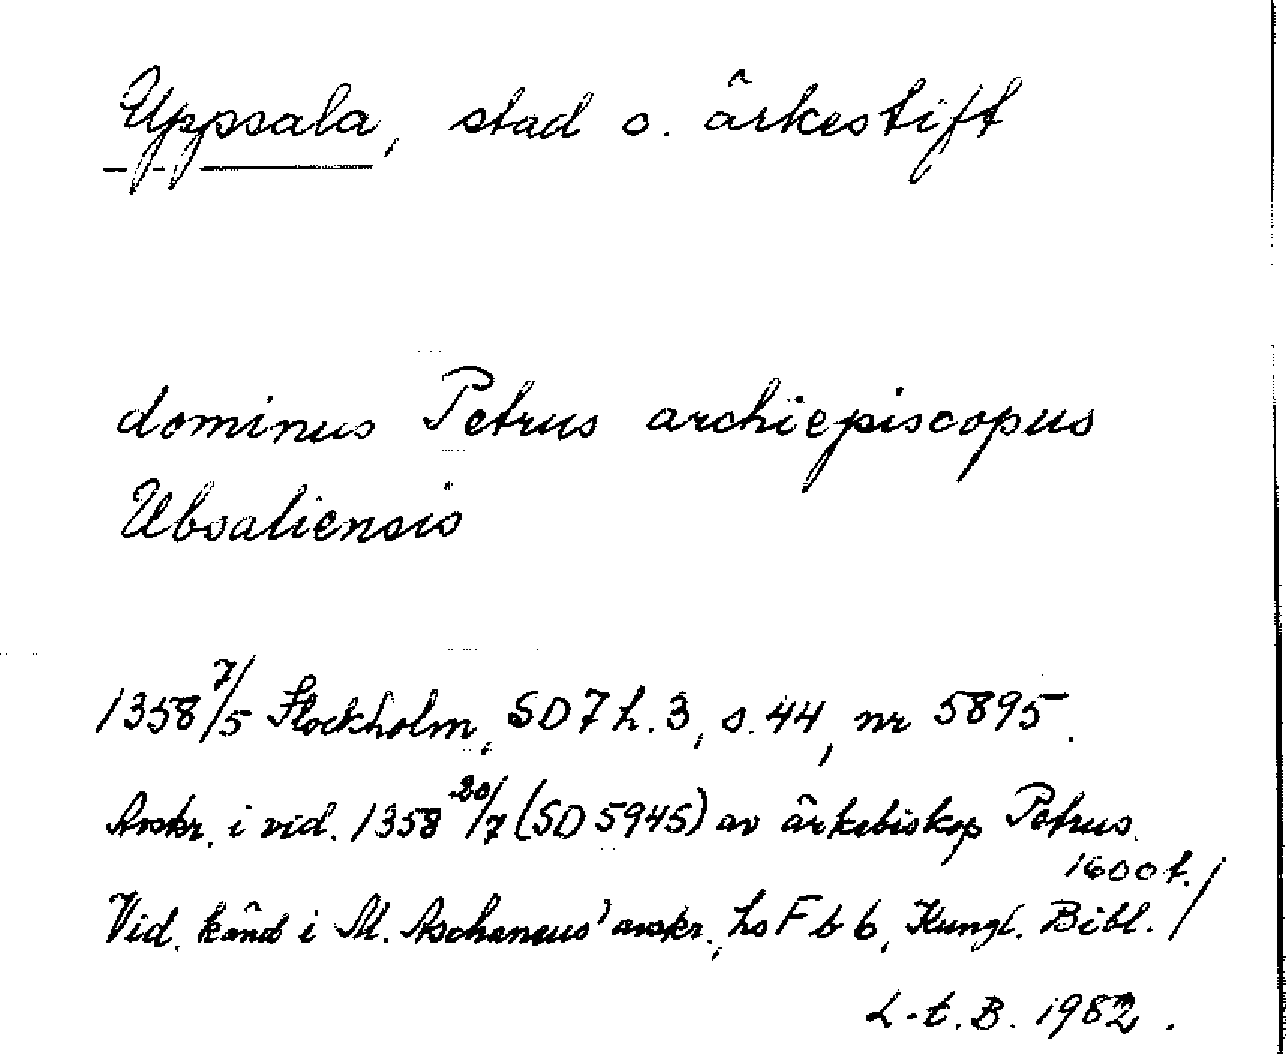 Uppsala, stad o. ärkestift
dominus Petrus archiepiscopus
Ubsaliensis
1358 7/5 Stockholm, SD 7 h. 3, s. 44, nr 5895.
Avskr. i vid. 1358 20/7 (SD 5945) av ärkebiskop Petrus.
1600t./
Vid. känd i M. Aschaneus' avskr., hs F b 6, Kungl. Bibl./
L-t. B. 1982.